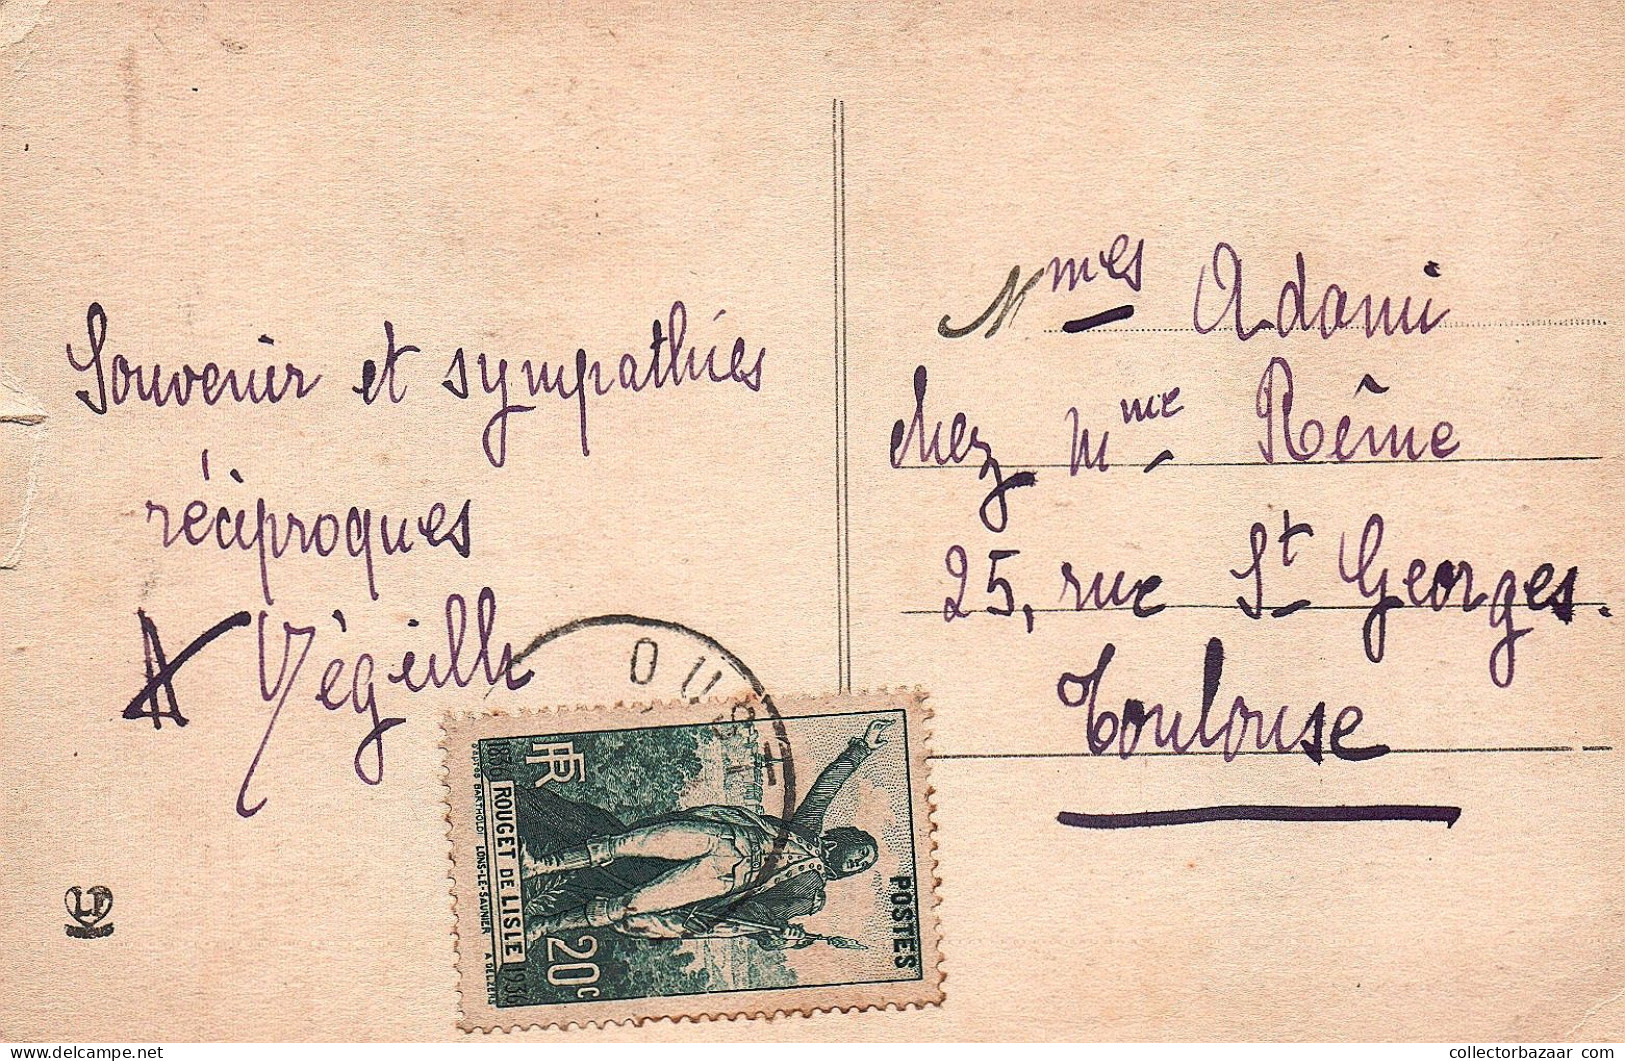 Souvenir et sympathies
réciproques
A
Mmes Adami
chez Mme Rême
25, rue St Georges.
Toulouse
OUST
RF
POSTES
1836 ROUGET DE LISLE 1936
20c
D'APRÈS BARTHOLDI LONS-LE-SAUNIER A.DELZERS
LP
collectorbazaar.com